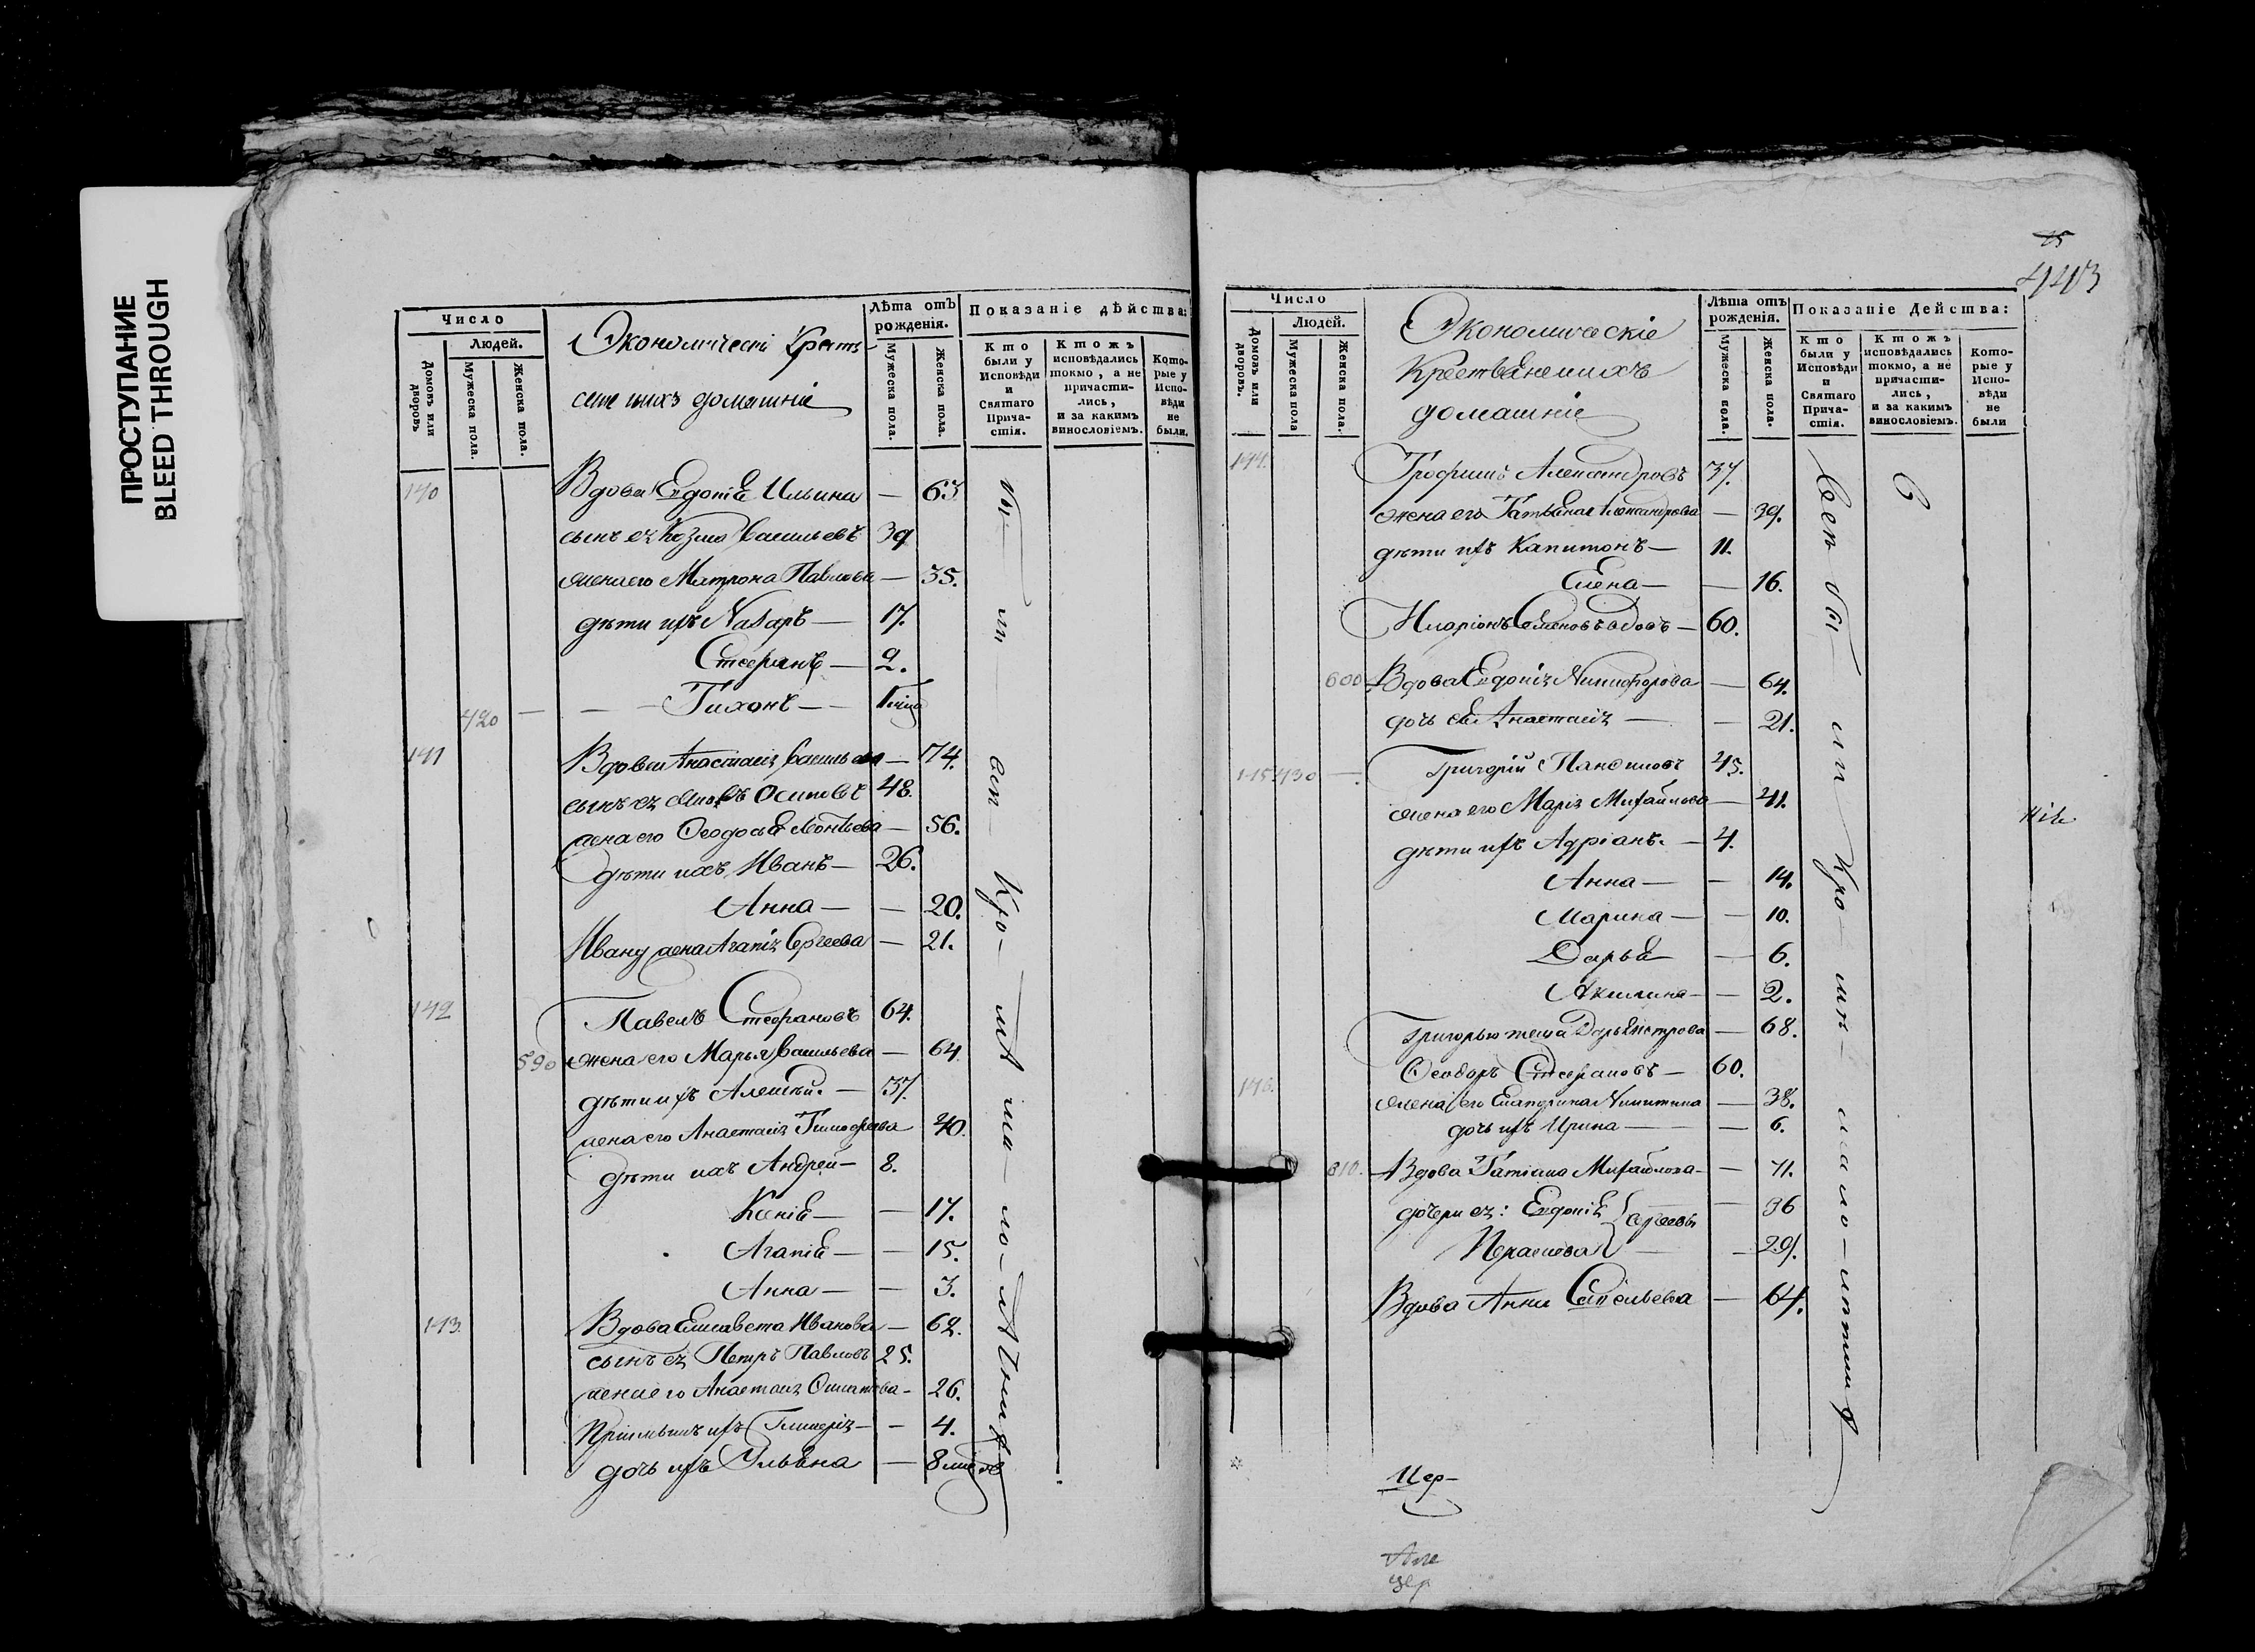 ПРОСТУПАНИЕ
BLEED THROUGH
Число
Людей.
Домовъ или дворовъ
Мужеска пола.
Женска пола.
Экономическі Крестъ-
сяне ихъ домашніе
Лѣта отъ рожденія.
Мужеска пола.
Женска пола.
Показаніе дѣйства:
Кто были у Исповѣди и Святаго Причастія.
Ктожъ исповѣдались токмо, а не причастились, и за какимъ винословіемъ.
Которые у Исповѣди не были.
140 Вдова Евдокія Ильина — 63
сынъ ея Козма Васильевъ 39
жена его Матрона Павлова — 35.
дѣти ихъ Назаръ — 17.
Стефанъ — 2.
420 — — — Тихонъ — —
141 Вдова Анастасія Васильева — 74.
сынъ ея Яковъ Осиповъ 48.
жена его Ѳеодосья Леонтьева — 56.
дѣти ихъ Иванъ — 26.
Анна — — 20.
Ивану жена Агапія Сергеева — 21.
142 Павелъ Стефановъ 64.
590 жена его Марья Васильева — 64.
дѣти ихъ Алексѣй. — 37.
жена его Анастасія Тимофеева 40.
дѣти ихъ Андрей — 8.
Ксенія — — 17.
Агапія — — 15.
Анна — — 3.
143. Вдова Елисавета Иванова — 62.
сынъ ея Петръ Павловъ 25.
жена его Анастасія — 26.
Пріемышъ ихъ Гликерія — — 4.
дочь ихъ Ульяна — 8
25
443
Число
Людей.
Домовъ или дворовъ.
Мужеска пола
Женска пола.
Экономическіе
Крестьяне и ихъ
домашніе
Лѣта отъ рожденія.
Мужеска пола.
Женска пола.
Показаніе Действа:
Кто были у Исповѣди и Святаго Причастія.
Ктожъ исповѣдались токмо, а не причастились, и за какимъ винословіемъ.
Которые у Исповѣди не были
144. Трофимъ Александровъ 37.
жена его Татьяна Александрова — 39.
дѣти ихъ Капитонъ — 11.
Елена — — 16.
Иларіонъ Семеновъ вдовъ — 60.
600 Вдова Евдокія Никифорова — 64.
дочь ея Анастасія — — 21.
145 430 — Григорій Панфиловъ 45.
жена его Марія Михайлова — 41.
дѣти ихъ Адріанъ. — 4.
Анна — — 14.
Марина — — 10.
Дарья — 6.
Акилина — — 2.
Григорью теща Дарья Петрова — 68.
146. Ѳеодоръ Стефановъ — 60.
жена его Екатерина Никитина — 38.
дочь ихъ Ирина — — 6.
610. Вдова Татіана Михайлова — — 71.
дочери ея: Евдокія Сергеевы — 36
Параскева — — 29.
Вдова Анна Савельева — 64.
Цер-